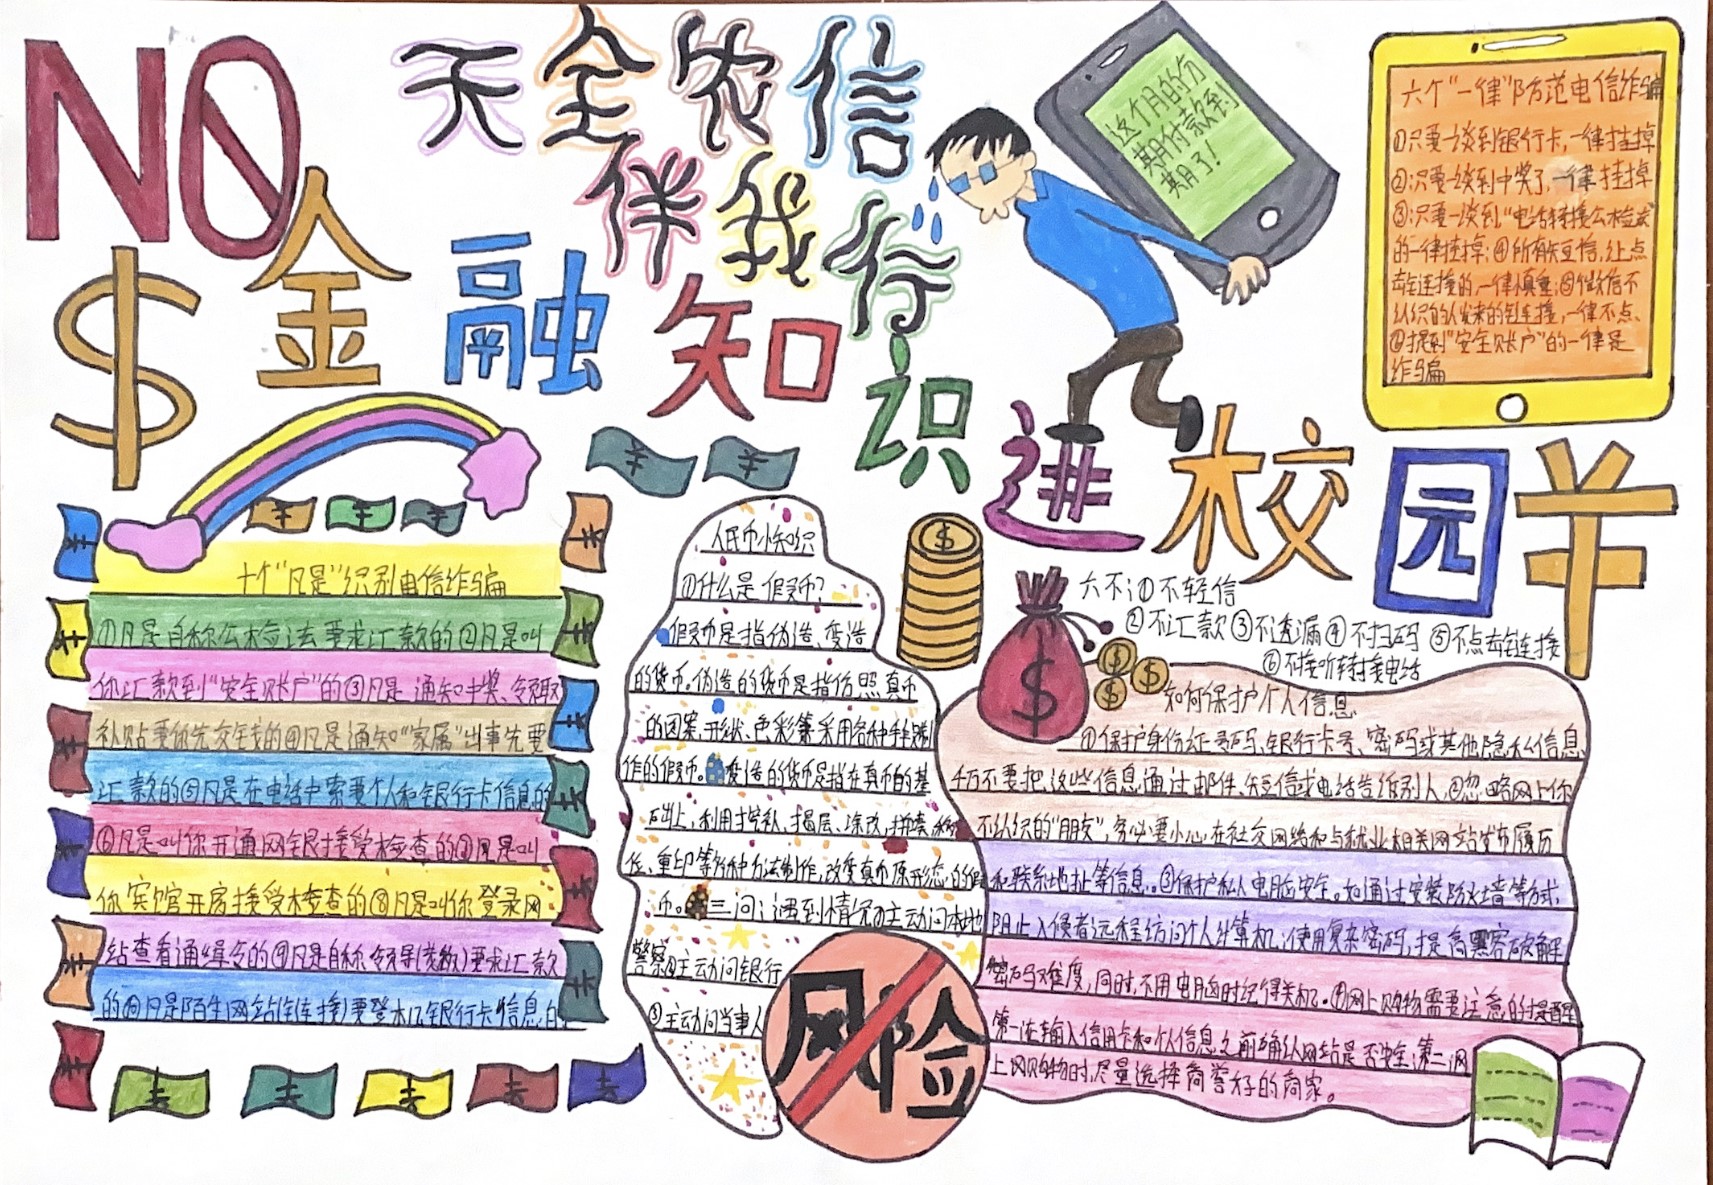 NO
天全农信
伴我行
$
金融知识进校园
羊
这个月的分
期付款到
期了!
六个“一律”防范电信诈骗
①只要一谈到银行卡,一律挂掉
②只要一谈到中奖了,一律挂掉
③只要一谈到“电话转接公检法”
的一律挂掉;④所有短信,让点
击链接的,一律慎重;⑤微信不
认识的人发来的链接,一律不点、
⑥提到“安全账户”的一律是
诈骗
十个“凡是”识别电信诈骗
①凡是自称公检法要求汇款的②凡是叫
你汇款到“安全账户”的③凡是通知中奖、领取
补贴要你先交钱的④凡是通知“家属”出事先要
汇款的⑤凡是在电话中索要个人和银行卡信息的
⑥凡是叫你开通网银接受检查的⑦凡是叫
你宾馆开房接受检查的⑧凡是叫你登录网
站查看通缉令的⑨凡是自称领导(老板)要求汇款
的⑩凡是陌生网站(链接)要登机银行卡信息的
人民币小知识
①什么是假币?
假币是指伪造、变造
的货币。伪造的货币是指仿照真币
的图案、形状、色彩等采用各种手段制
作的假币。变造的货币是指在真币的基
础上,利用挖补、揭层、涂改、拼凑、移
位、重印等多种方法制作,改变真币原形态的假
币。三问:遇到情况①主动问本地
警察②主动问银行
③主动问当事人
风险
$
$
六不:①不轻信
②不汇款③不透漏④不扫码⑤不点击链接
⑥不接听转接电话
如何保护个人信息
①保护身份证号码、银行卡号、密码或其他隐私信息
千万不要把这些信息通过邮件、短信或电话告诉别人,②忽略网上你
不认识的“朋友”,务必要小心在社交网络和与就业相关网站发布履历
和联系地址等信息。③保护私人电脑安全。如通过安装防火墙等方式,
阻止入侵者远程访问个人计算机;使用复杂密码,提高黑客破解
密码难度,同时,不用电脑时记得关机。④网上购物需要注意的提醒
第一、在输入信用卡和个人信息之前确认网站是否安全;第二、网
上网购物时,尽量选择简誉好的商家。